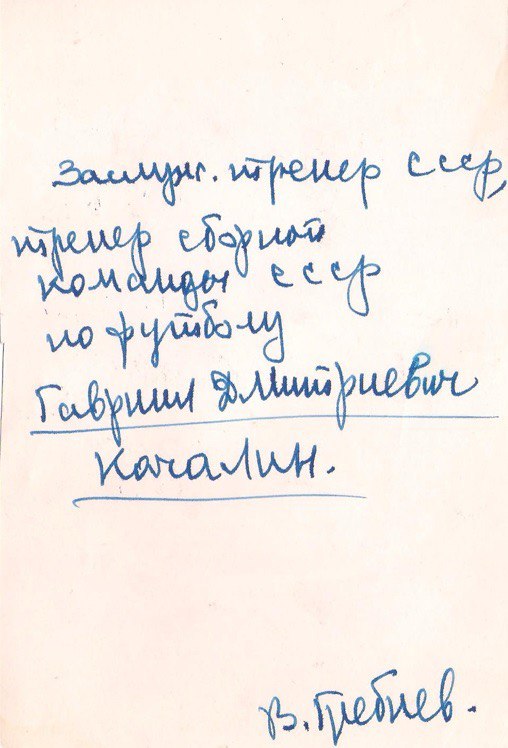 Заслуж. тренер СССР,
тренер сборной
команды СССР
по футболу
Гавриил Дмитриевич
Качалин.
В. Гребнев.